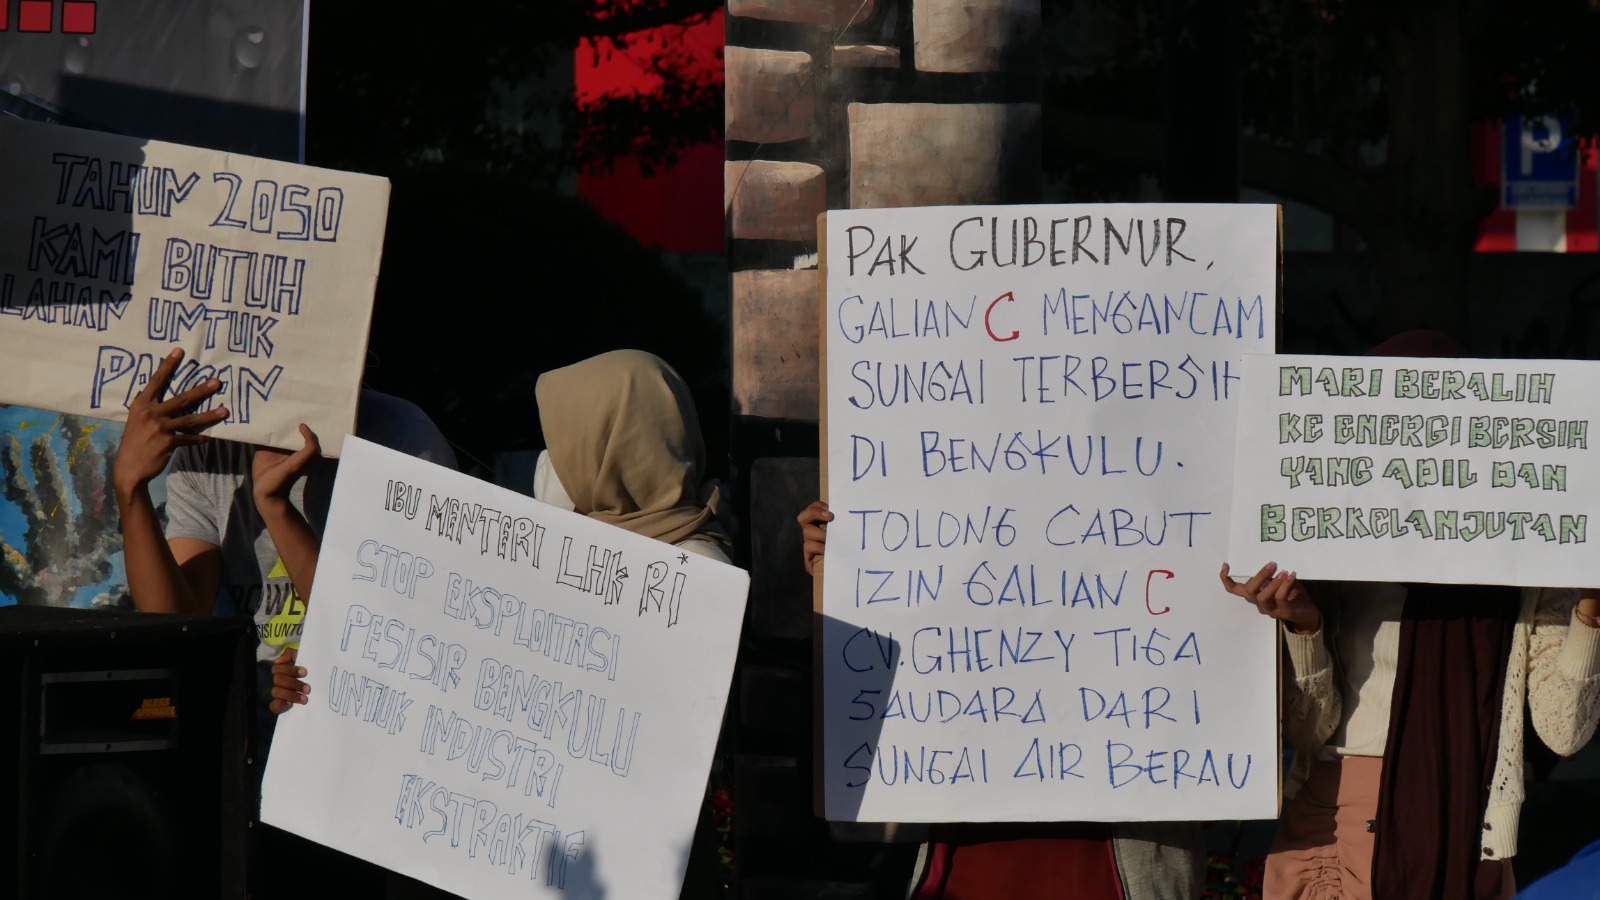 TAHUN 2050
KAMI BUTUH
LAHAN UNTUK
PANGAN
IBU MENTERI LHK RI
STOP EKSPLOITASI
PESISIR BENGKULU
UNTUK INDUSTRI
EKSTRAKTIF
PAK GUBERNUR,
GALIAN C MENGANCAM
SUNGAI TERBERSIH
DI BENGKULU.
TOLONG CABUT
IZIN GALIAN C
CV. GHENZY TIGA
SAUDARA DARI
SUNGAI AIR BERAU
MARI BERALIH
KE ENERGI BERSIH
YANG ADIL DAN
BERKELANJUTAN
P